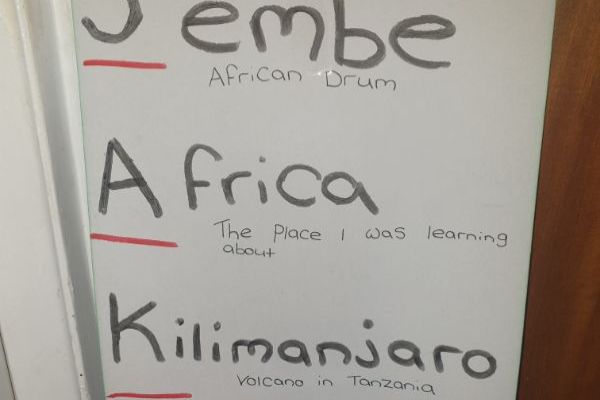 Jembe
African Drum
Africa
The Place I was learning
about
Kilimanjaro
Volcano in Tanzania